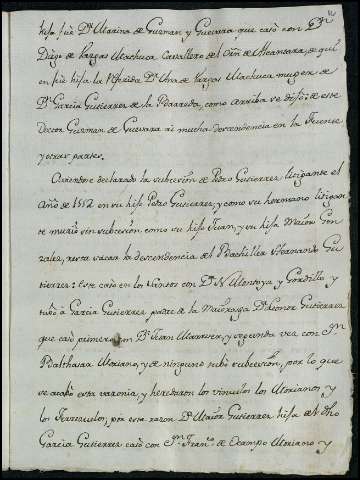 hija fue Dª Marina de Guzman y Guevara que casó con Dn
Diego de Vargas Machuca Cavallero del Orñ de Alcantara, de quien
fue hija la referida Dª Ana de Vargas Machuca muger de
Dn Garcia Gutierrez de la Barreda, como arriba se dijo: de este
Doctor Guzman de Guevara ai mucha descendencia en la
y otras partes.
Aviendose declarado la subcesión de Pedro Gutierrez litigante el
Año de 1552 en su hijo Pedro Gutierrez, y como su hermano litigan
te murio sin subcesión como su hijo Juan, y su hija Maior Gon
zalez, resta sacar la descendencia del Bachiller Hernando Gu
tierrez: Este casó en los Santos con Dª N. Montoya y Gordillo y
tubo à Garcia Gutierrez padre de la Maioraga Dª Leonor Gutierrez
que casó primero con Dn Juan, y segunda vez con Dn
Balthasar Moriano, y de ninguno tubo subcesión, por lo que
se acabó esta varonia, y heredaron los vinculos los Morianos, y
los, por esta razon Dª Maior Gutierrez hija de dho
Garcia Gutierrez casó con Dn Franco de Ocampo Moriano y